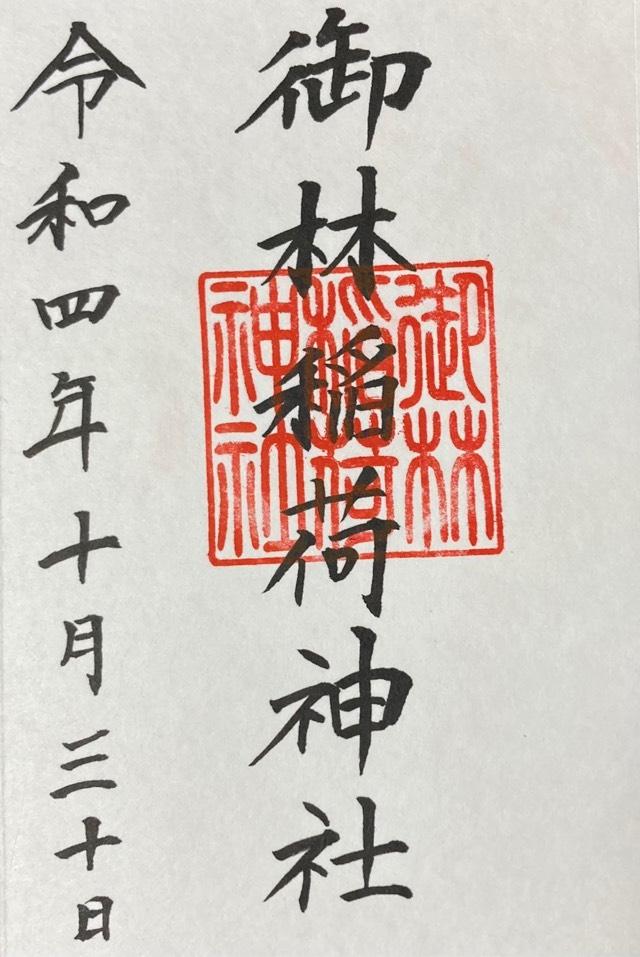 御林稲荷神社
御林
稲荷
神社
令和四年十月三十日